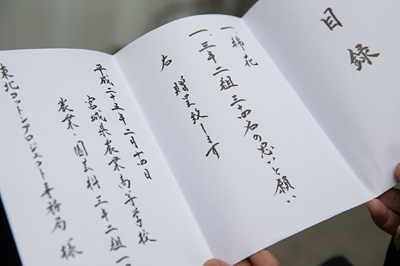 目録
一、綿花
一、三年二組 三十四名の思いと願い
右
贈呈致します
平成二十五年二月十四日
宮城県農業高等学校
農業・園芸科三年二組一
東北コットンプロジェクト事務局 様